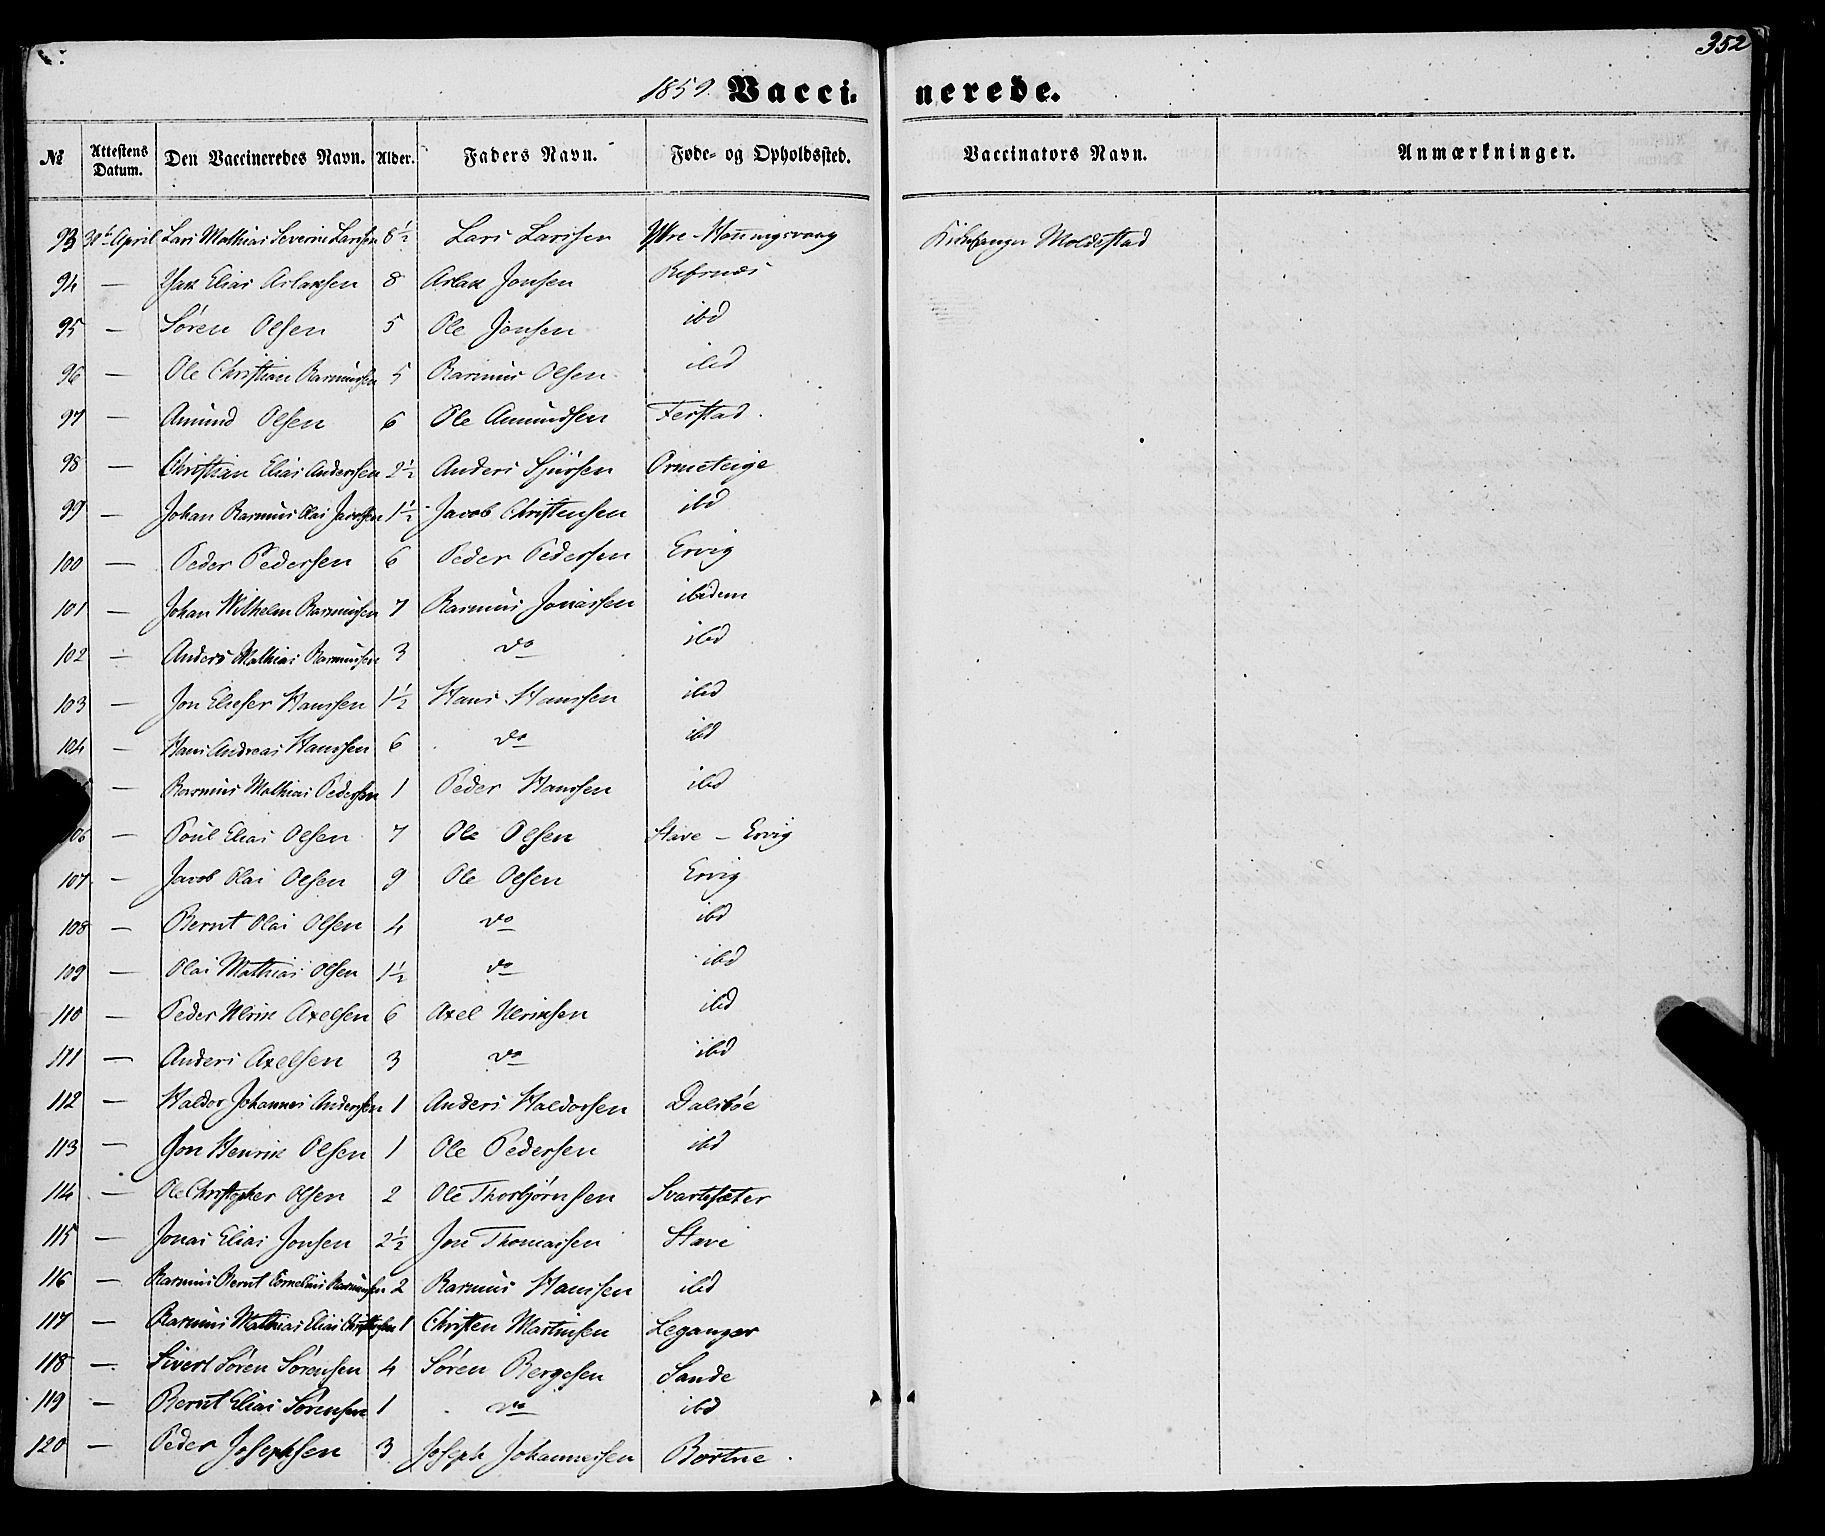 352
1859. Vaccinerede.
№ Attestens Datum. Den Vaccineredes Navn. Alder. Faders Navn. Føde- og Opholdssted. Vaccinators Navn. Anmærkninger.
93 April Lars Mathias Severin Larssen 8½ Lars Larssen Ytre-Hanningsvaag Moldestad
94 — Isak Elias Aslaksen 8 Aslak Jonsen Refsnæs
95 — Søren Olsen 5 Ole Jonsen ibd
96 — Ole Christian Rasmussen 5 Rasmus Olsen ibd
97 — Amund Olsen 6 Ole Amundsen Ferstad.
98 — Christian Elias Anderssen 2½ Anders Sjursen Ormeteige
99 — Johan Rasmus Olai Jacobsen 1½ Jacob Christensen ibd
100 — Peder Pedersen 6 Peder Pedersen Ervig
101 — Johan Wilhelm Rasmussen 7 Rasmus Jonassen ibidem
102 — Anders Mathias Rasmussen 3 do ibd
103 — Jon Elieser Hanssen 1½ Hans Hanssen ibd
104 — Hans Andreas Hanssen 6 do ibd
— Rasmus Mathias Pedersen 1 Peder Hanssen ibd
106 — Poul Elias Olsen 7 Ole Olsen Stave - Ervig
107 — Jacob Olai Olsen 9 Ole Olsen Ervig
108 — Bernt Olai Olsen 4 do ibd
109 — Olai Mathias Olsen 1½ do ibd
110 — Peder Ulrik Axelsen 6 Axel Ulriksen ibd
111 — Anders Axelsen 3 do ibd
112 — Haldor Johannes Anderssen 1 Anders Haldorsen Dalsbøe
113 — Jon Henrik Olsen 1 Ole Pedersen ibd
114 — Ole Christopher Olsen 2 Ole Thorbjørnsen Svartesæter
115 — Jonas Elias Jonsen 2½ Jon Thomassen Stave
116 — Rasmus Bernt Cornelius Rasmussen 2 Rasmus Hanssen ibd
117 — Rasmus Mathias Elias Christensen 1 Christen Martinsen Leganger
118 — Sivert Søren Sørensen 4 Søren Bergesen Sande
119 — Bernt Elias Sørensen 1 do ibd
120 — Peder Josephsen 3 Joseph Johannessen Bortne.